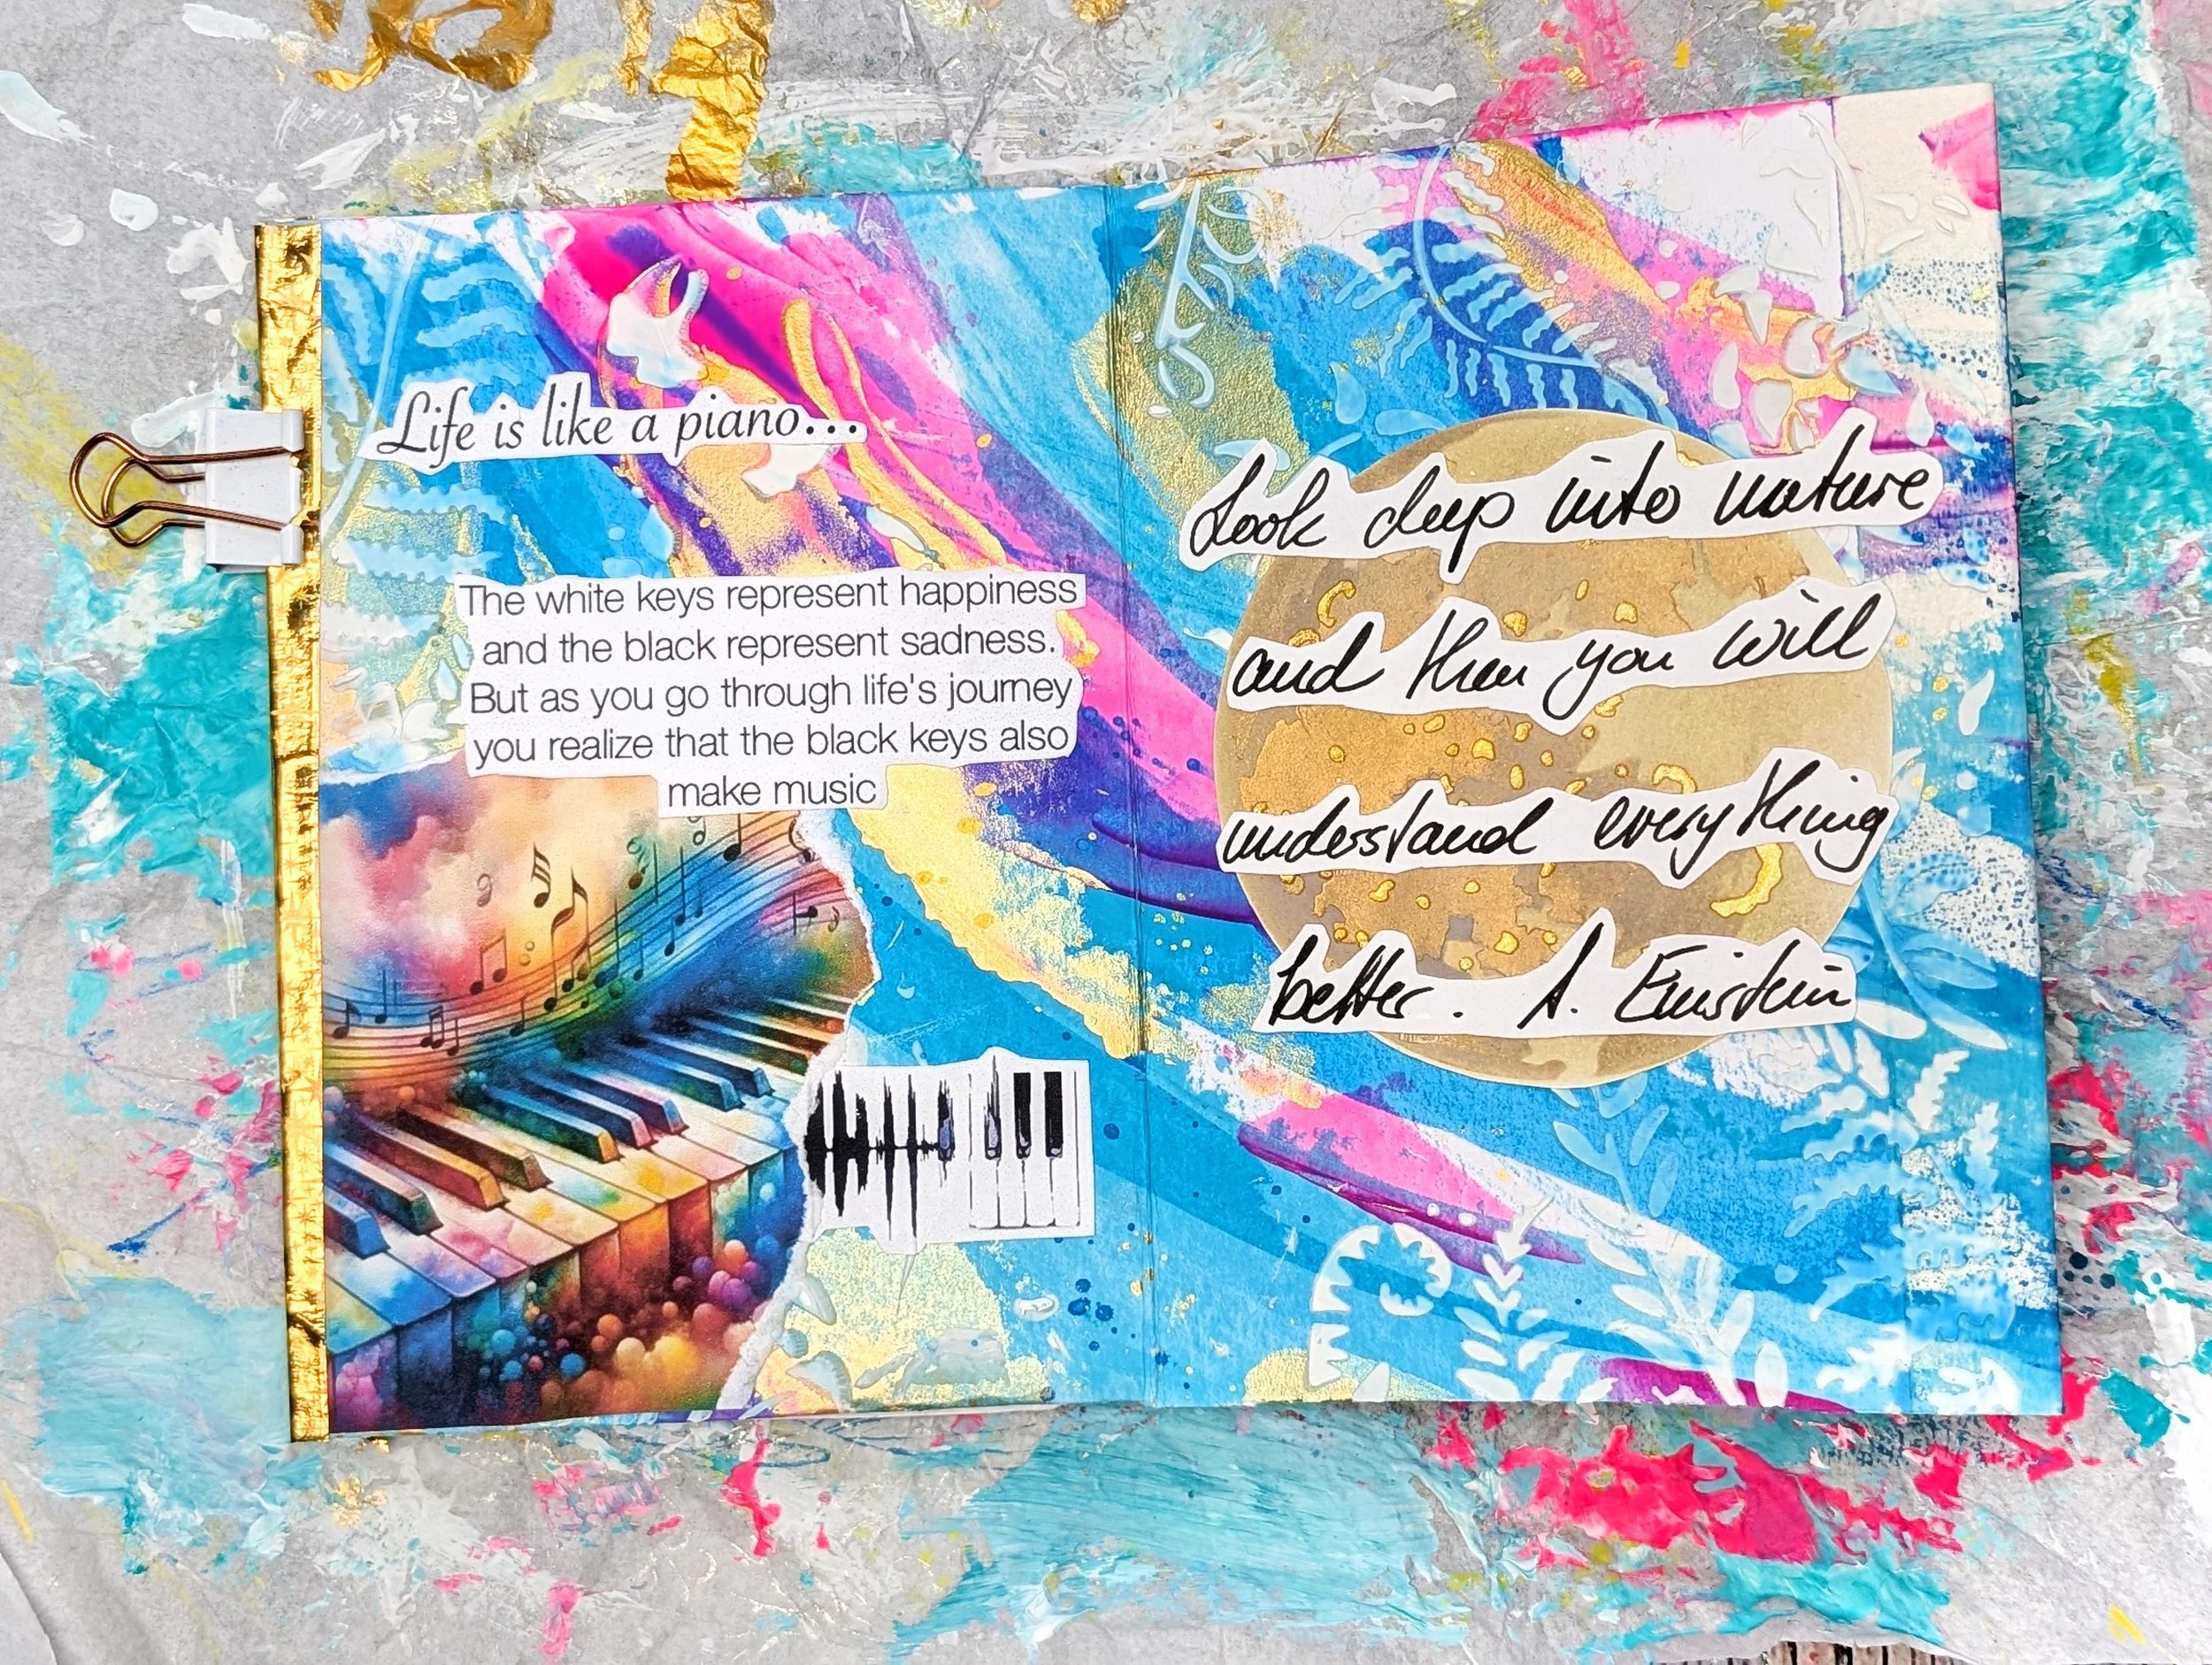 Life is like a piano...
The white keys represent happiness
and the black represent sadness.
But as you go through life's journey
you realize that the black keys also
make music
Look deep into nature
and then you will
understand everything
better. A. Einstein